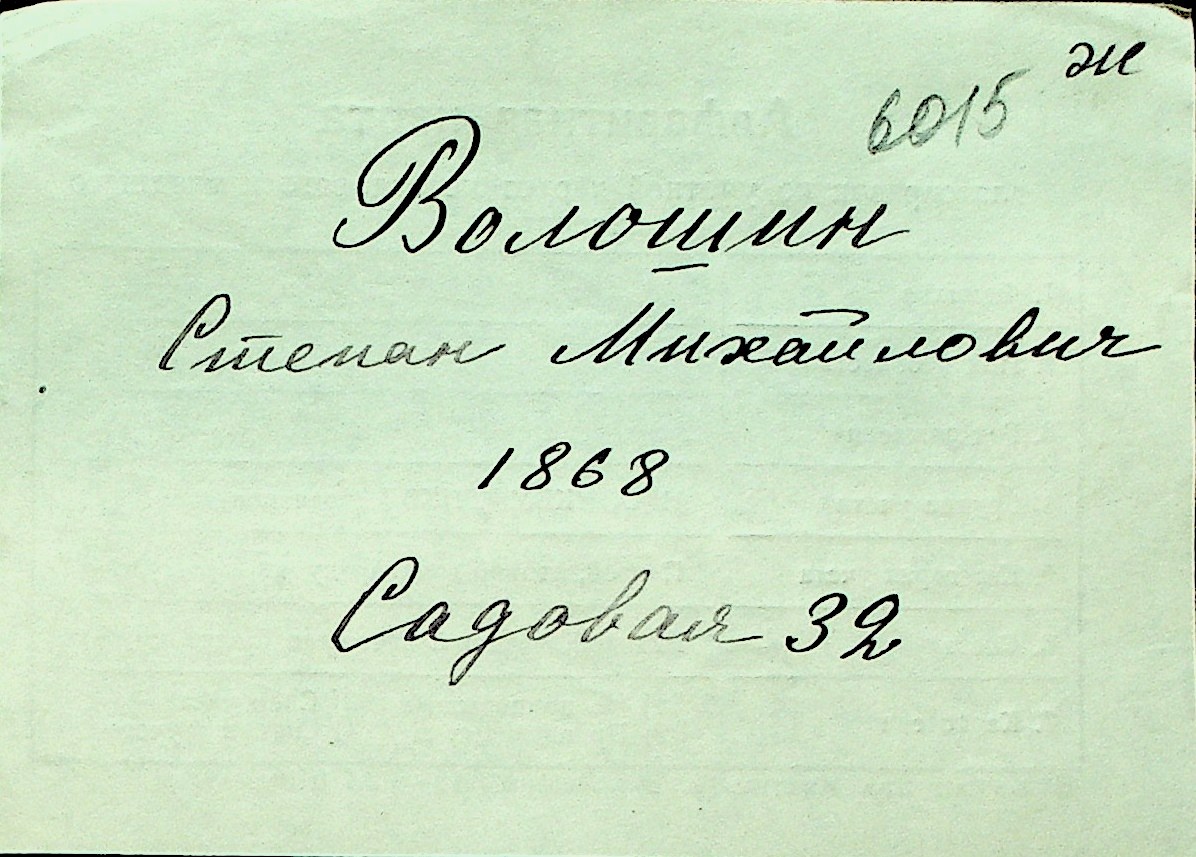 ж
6015
Волошин
Степан Михайлович
1868
Садовая 32